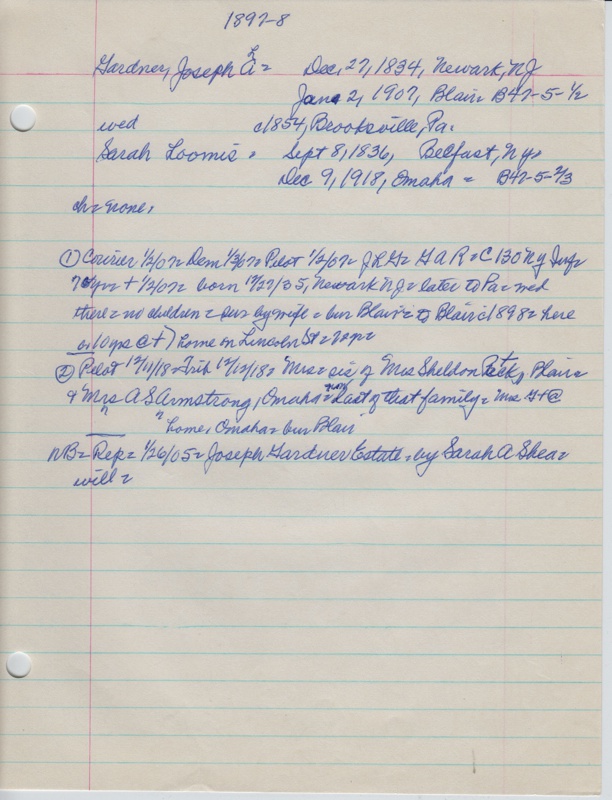 1897-8
Gardner, Joseph L = Dec, 27, 1834, Newark, NJ
Jan 2, 1907, Blair = B47-5-1/2
wed c1854, Brooksville, Pa.
Sarah Loomis = Sept 8, 1836, Belfast, Ny =
Dec 9, 1918, Omaha = B47-5-2/3
ch = none,
① Courier 1/2/07 = Dem 1/3/07 = Pilot 1/2/07 = J L G = G A R = C 130 Ny Inf =
+ 1/2/07 = born 12/27/35, Newark NJ = later to Pa = wed
there = no children = sur by wife = bur Blair = to Blair c1898 = here
10 yrs @ +) home on Lincoln St =
② Pilot 12/11/18 = Trib 12/12/18 = Mrs = sis of Mrs Sheldon Peck, Blair =
& Mrs A S Armstrong, Omaha = Last of that family = Mrs G + @
" " home, Omaha = bur Blair
NB = Rep = 1/26/05 = Joseph Gardner Estate = by Sarah A Shea =
will =